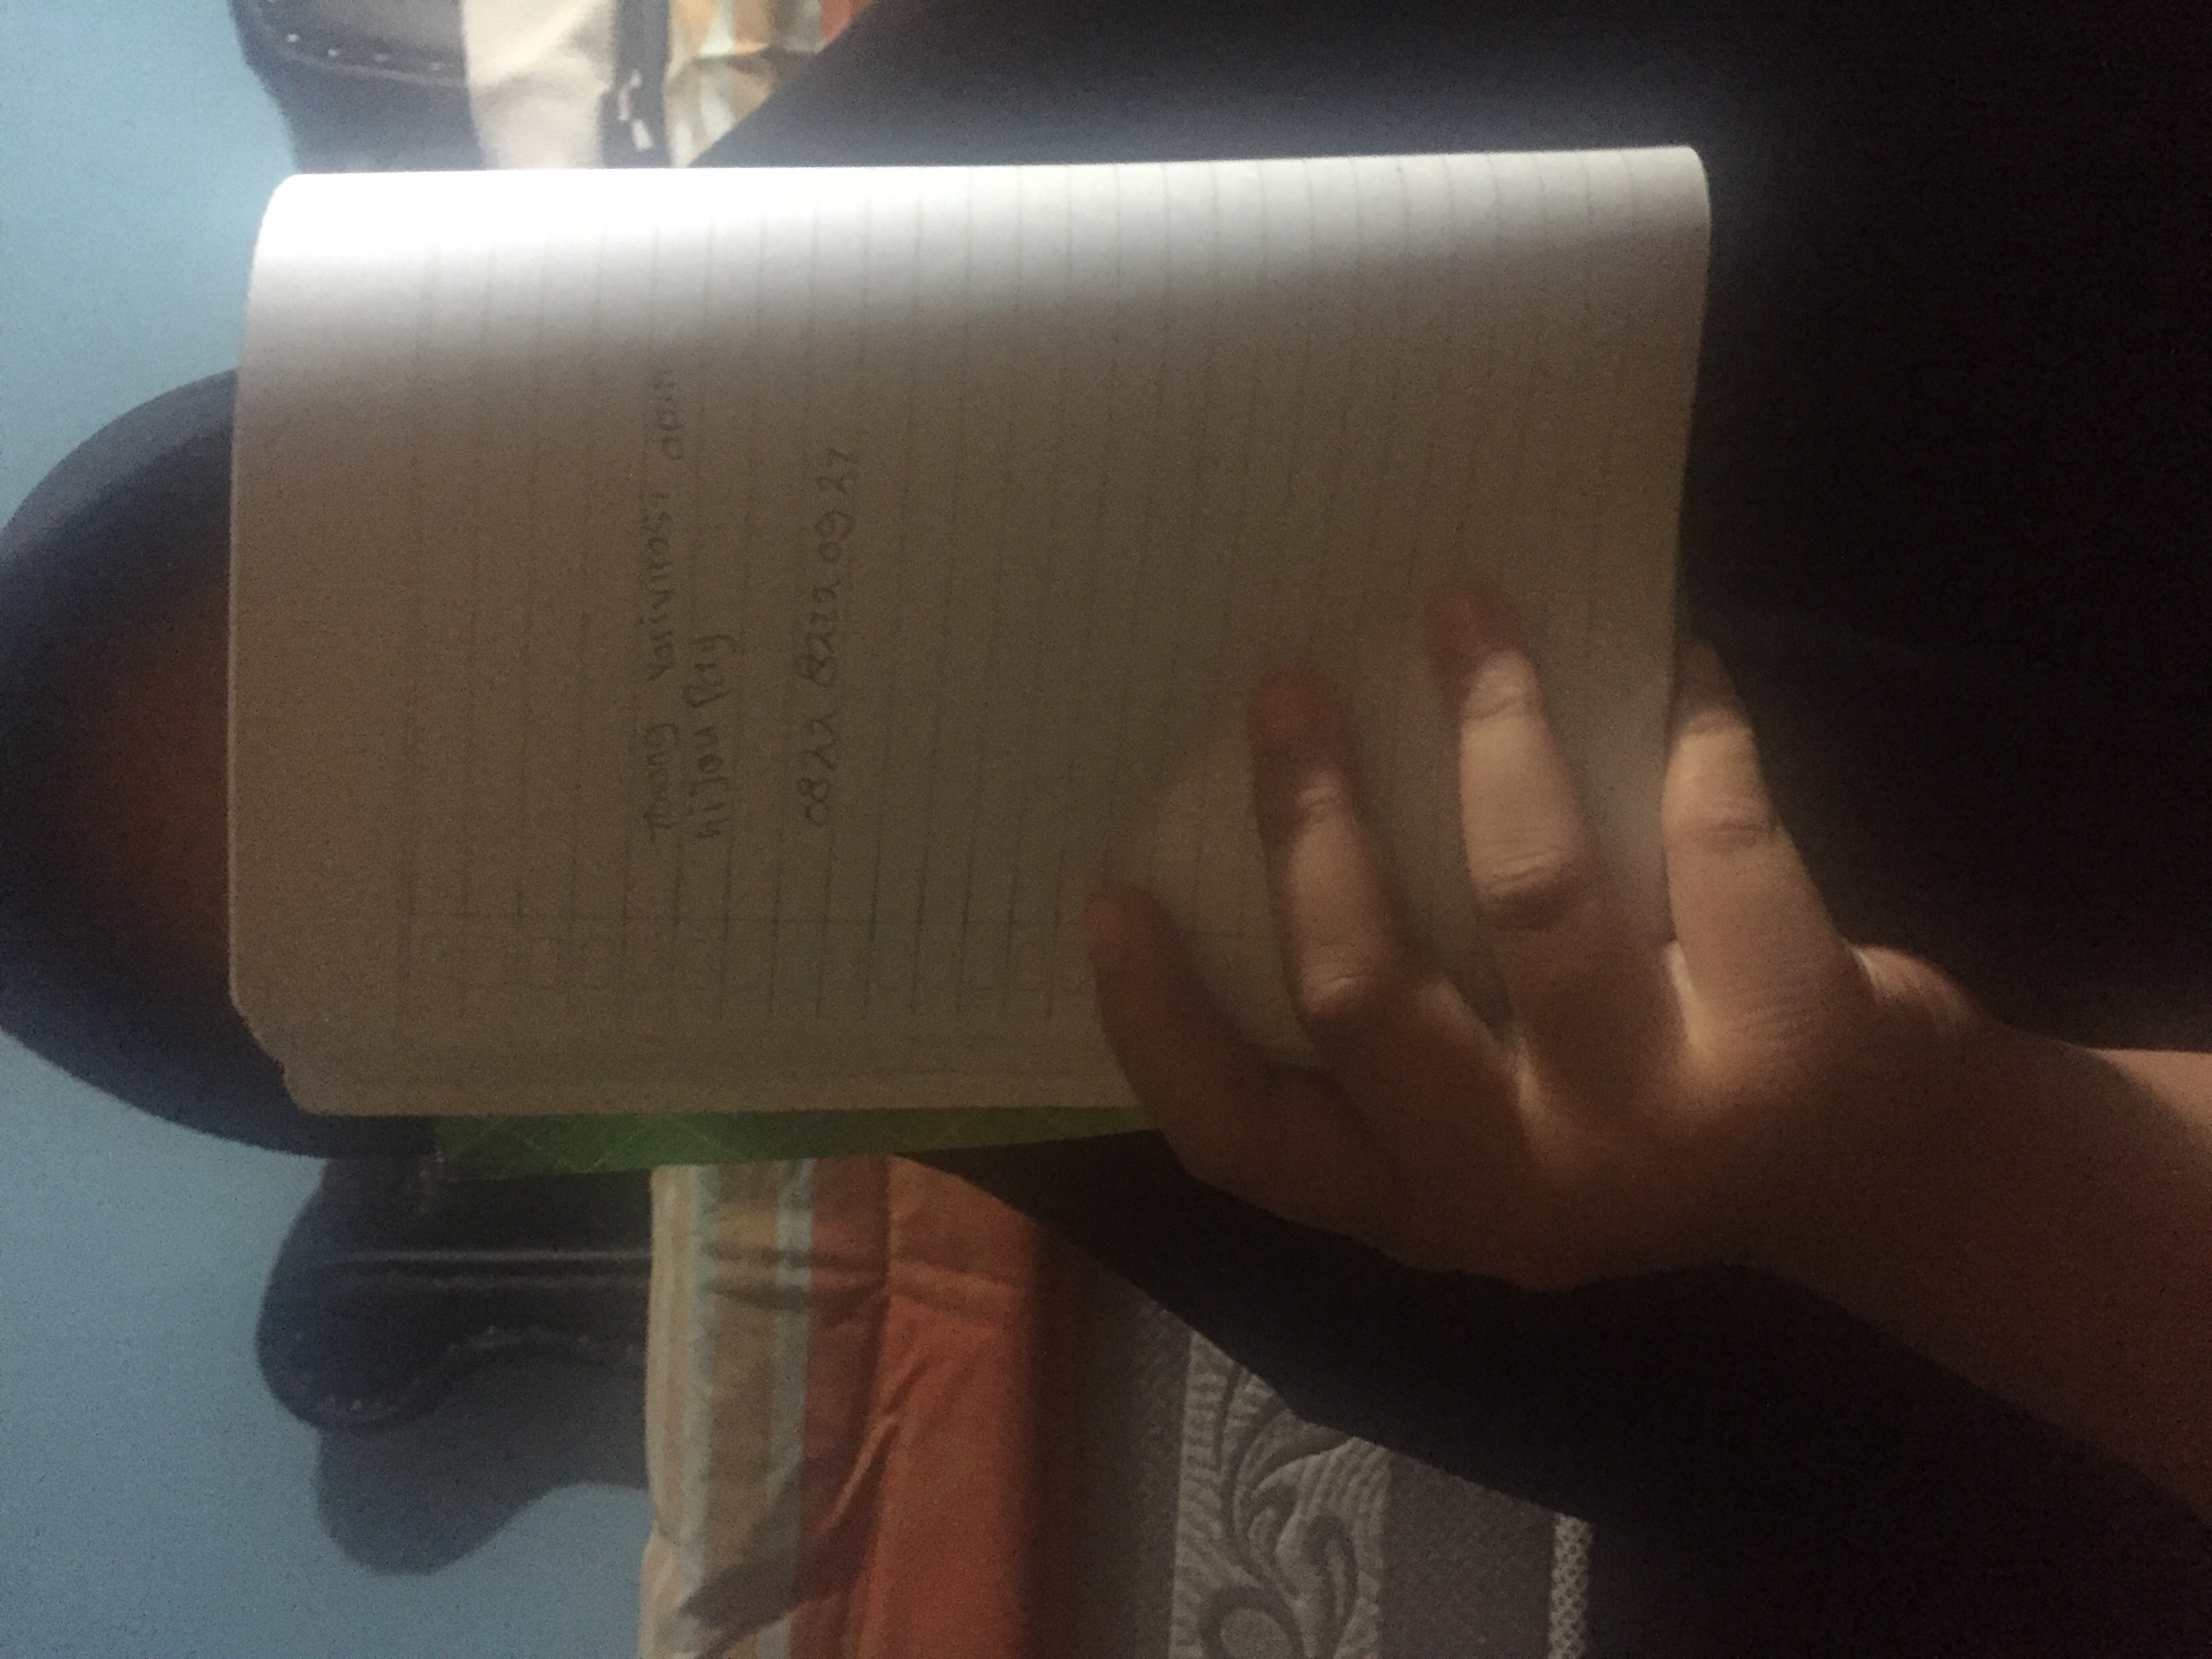 Tolong Verivikasi akun
hijau Pay
0822 8212 0927